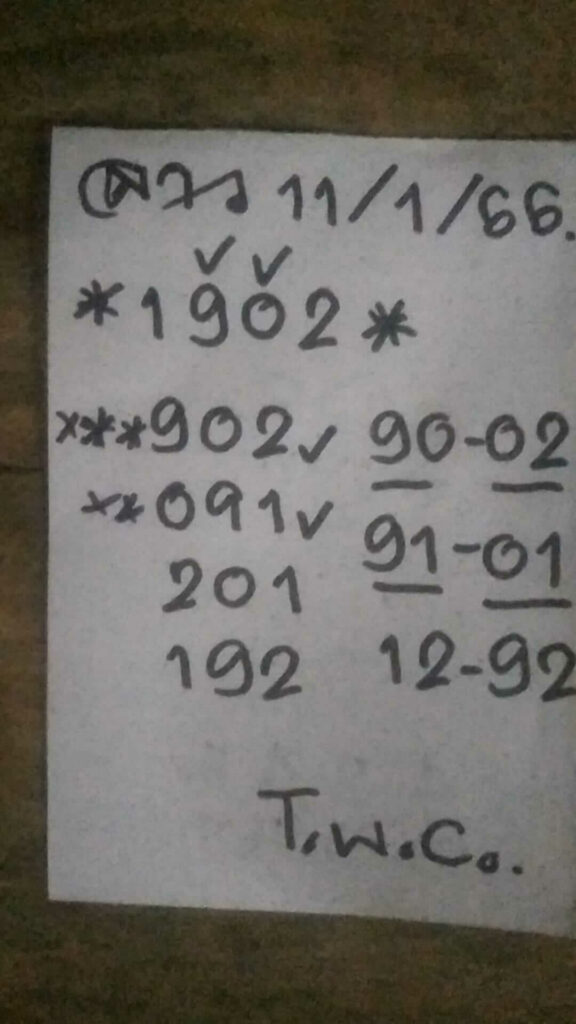 ลาว 11/1/66.
✓ ✓
*1902*
×**902✓ 90-02
××091✓ 91-01
201
192 12-92
T.W.C..